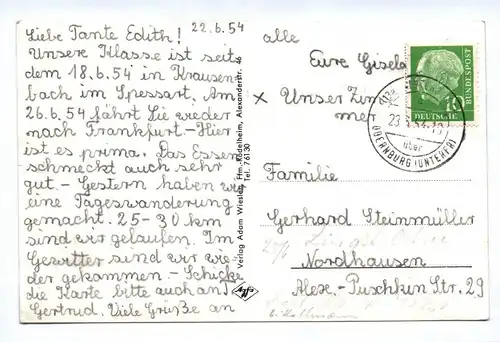 22.6.54
Liebe Tante Edith!
Unsere Klasse ist seit
dem 18.6.54 in Krausen-
bach im Spessart. Am
26.6.54 fährt Sie wieder
nach Frankfurt - Hier
ist es prima. Das Essen
schmeckt auch sehr
gut. - Gestern haben wir
eine Tageswanderung
gemacht. 25-30 km
sind wir gelaufen. Im
Gewitter sind wir wie-
der gekommen - Schicke
die Karte bitte auch an
Gertrud. Viele Grüße an
alle
Eure Gisela
x Unser Zim
mer
Verlag Adam Wiester, Ffm.-Rödelheim, Alexanderstr. 46
Tel. 76130
Agfa
10
DEUTSCHE
BUNDESPOST
über
OBERNBURG (UNTERFR)
Familie
Gerhard Steinmüller
Nordhausen
Alex.-Puschkin Str. 29